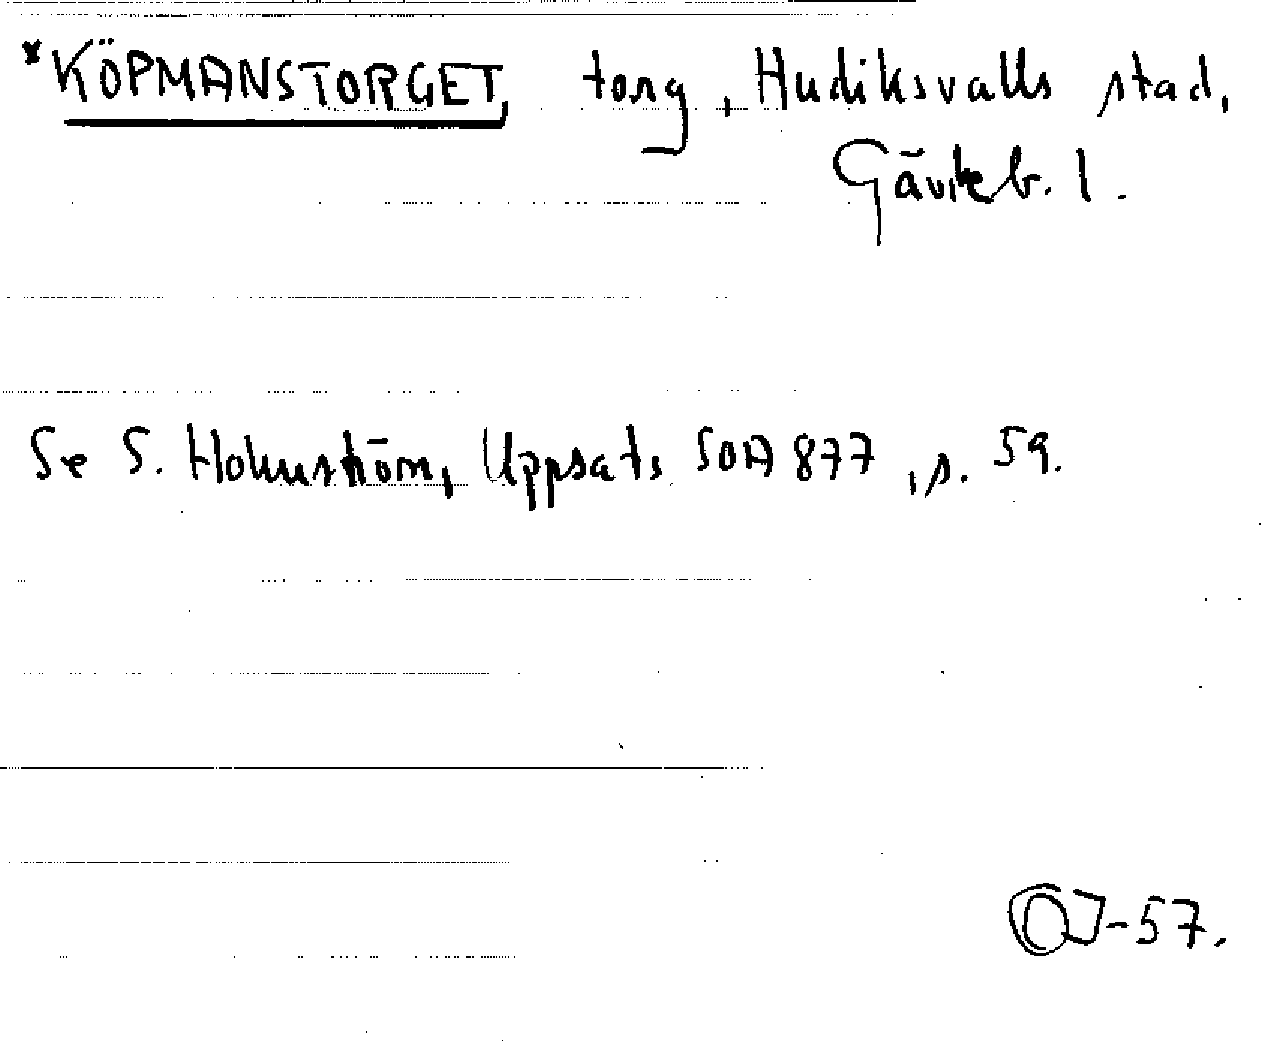 *KÖPMANSTORGET, torg, Hudiksvalls stad,
Gävleb. l.
Se S. Holmström, Uppsats SOA 877, s. 59.
OJ-57.